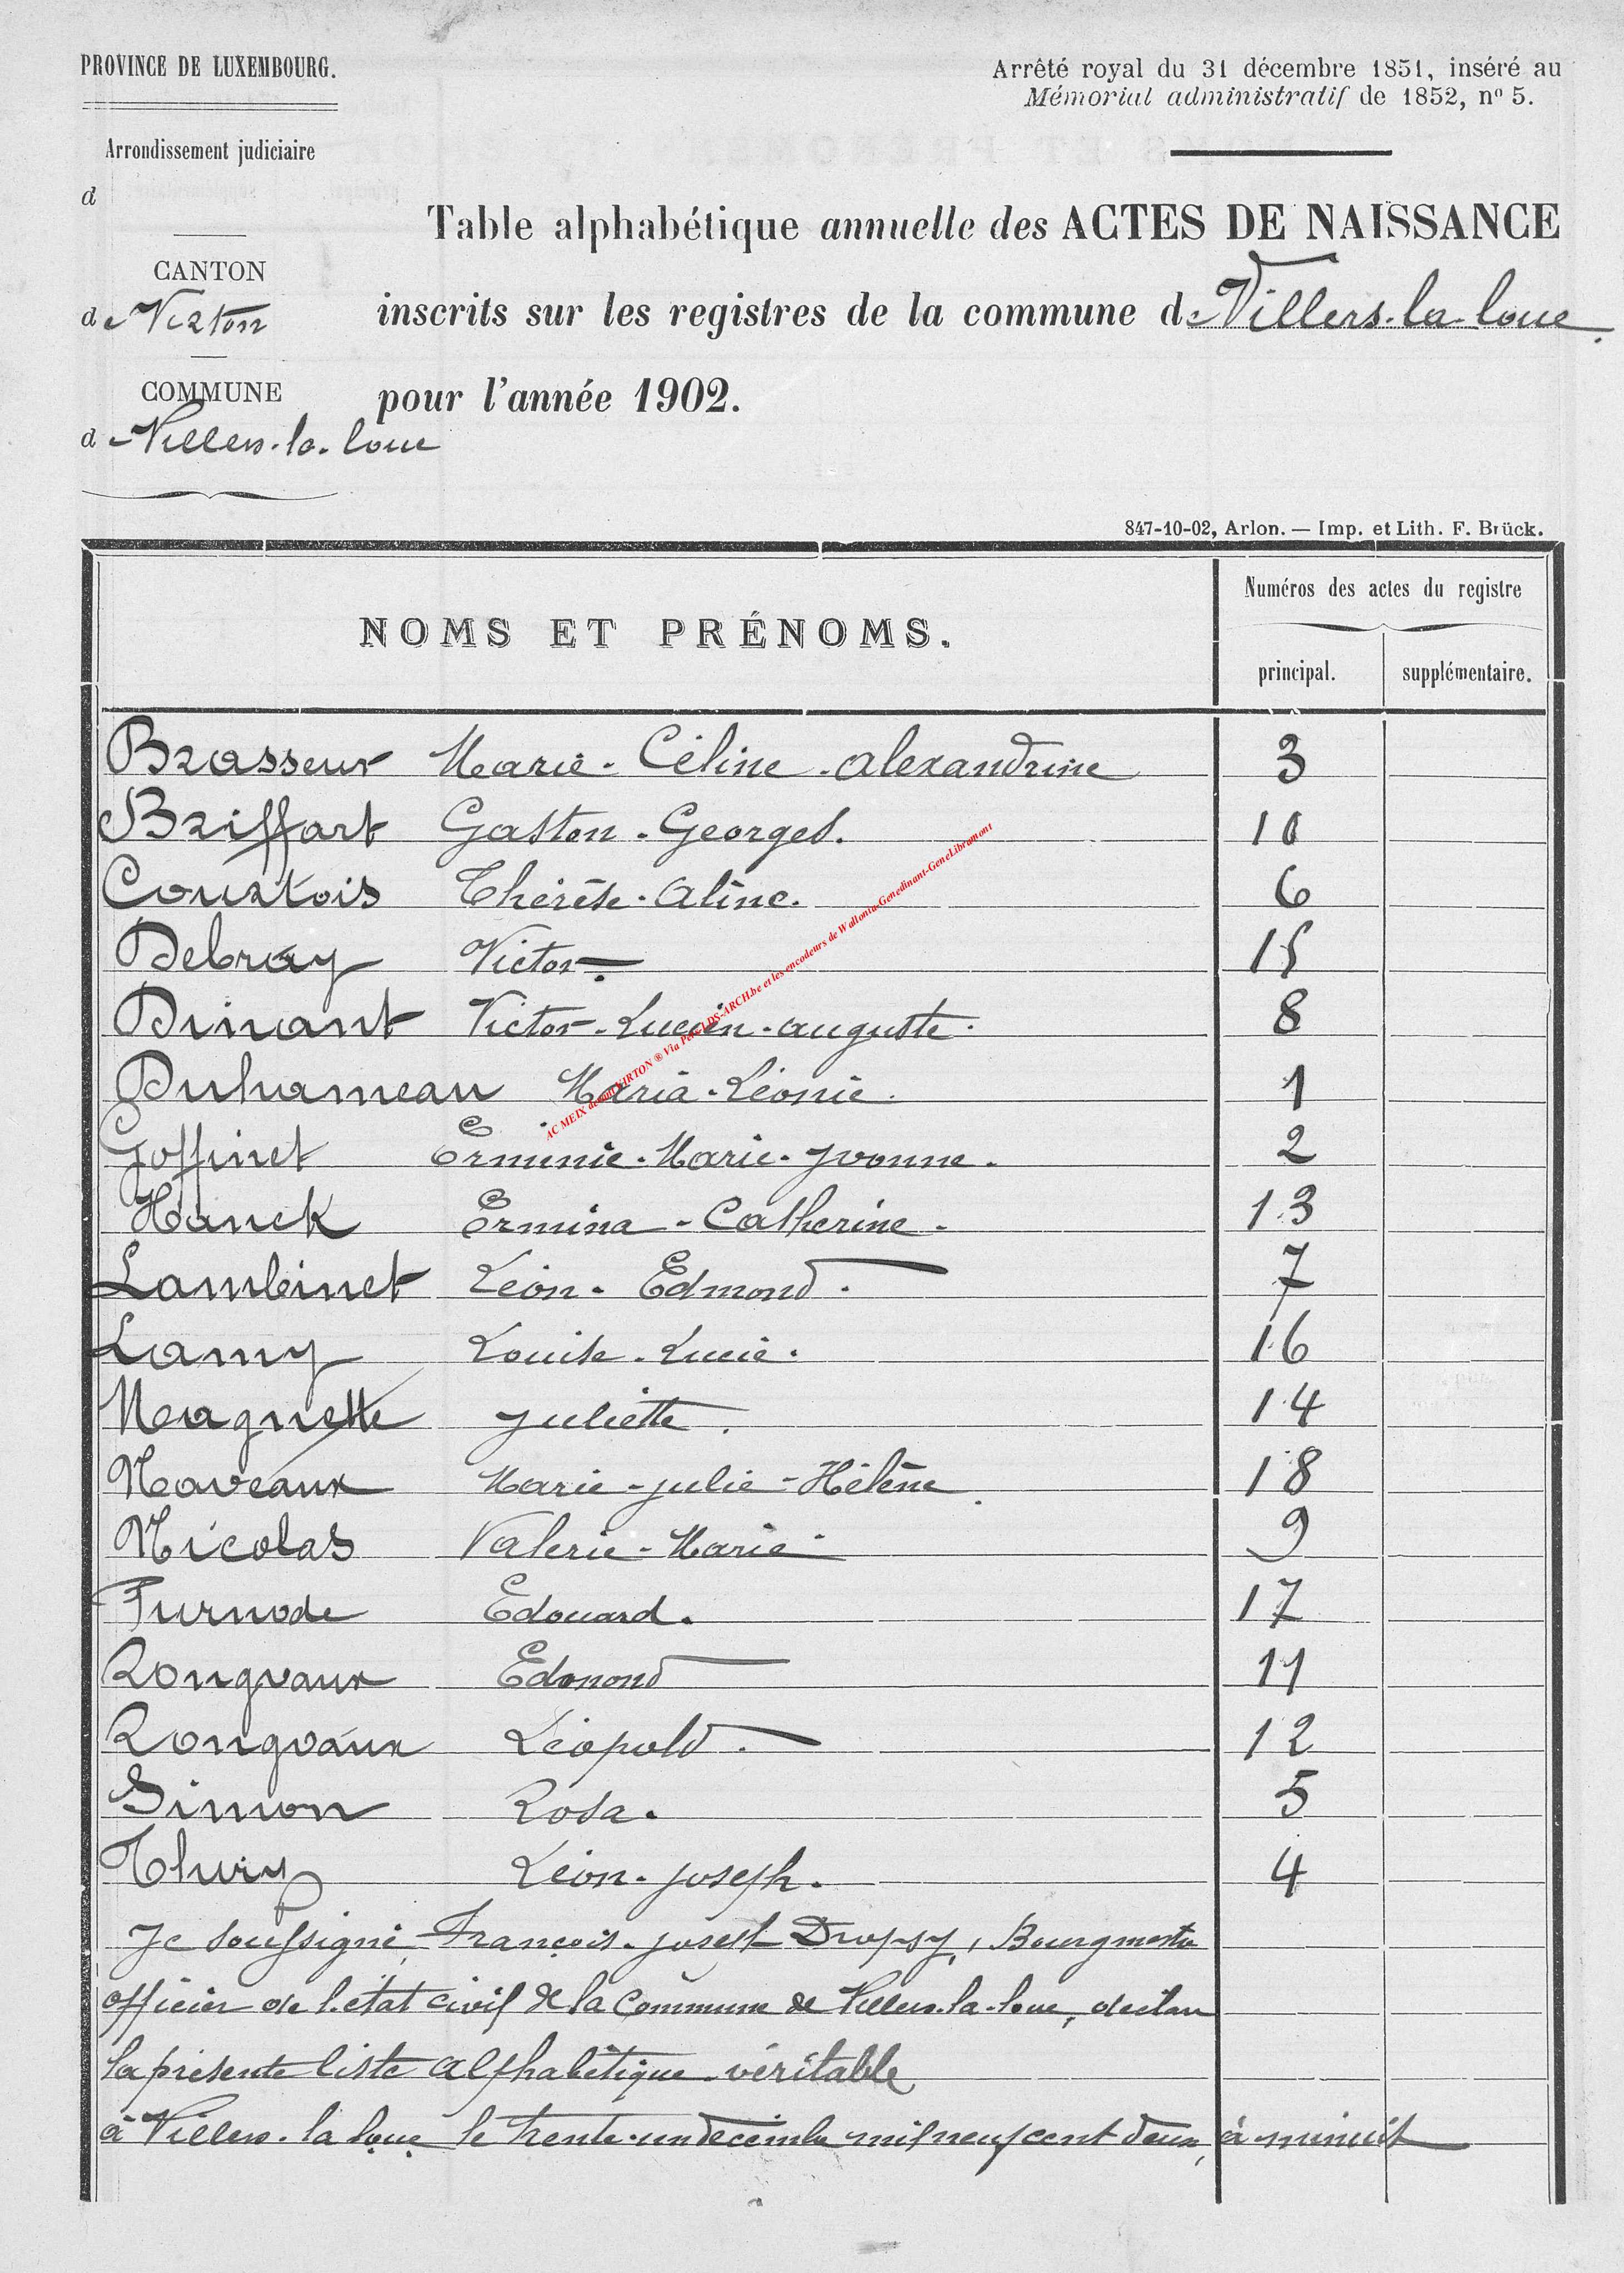 PROVINCE DE LUXEMBOURG.
Arrêté royal du 31 décembre 1851, inséré au
Mémorial administratif de 1852, nº 5.
Arrondissement judiciaire
d
Table alphabétique annuelle des ACTES DE NAISSANCE
CANTON
de Virton
inscrits sur les registres de la commune de Villers-la-loue
COMMUNE
pour l'année 1902.
de Villers-la-loue
847-10-02, Arlon. — Imp. et Lith. F. Brück.
NOMS ET PRÉNOMS.
Numéros des actes du registre
principal. supplémentaire.
Brasseur Marie-Céline-Alexandrine 3
Briffart Gaston-Georges. 10
Courtois Thérèse-Aline. 6
Debray Victor 15
Dinant Victor-Lucien-Auguste. 8
Duhameau Maria-Léonie. 1
Goffinet Erminie-Marie-Yvonne. 2
Hanck Ermina-Catherine. 13
Lambinet Léon-Edmond. 7
Lamy Louise-Lucie. 16
Magnette Juliette. 14
Maveaux Marie-Julie-Hélène. 18
Nicolas Valérie-Marie 9
Purnode Edouard. 17
Rongvaux Edmond 11
Rongvaux Léopold. 12
Simon Rosa. 5
Thiry Léon-Joseph. 4
Je soussigné, François-Joseph Dropsy, Bourgmestre
officier de l'état civil de la Commune de Villers-la-loue, déclare
la présente liste alphabétique véritable
à Villers-la-loue le trente-un décembre mil neuf cent deux, à minuit
AC MEIX devant VIRTON ® Via Pet LDS-ARCH.be et les encodeurs de Wallonia-Genedinant-GeneLibramont